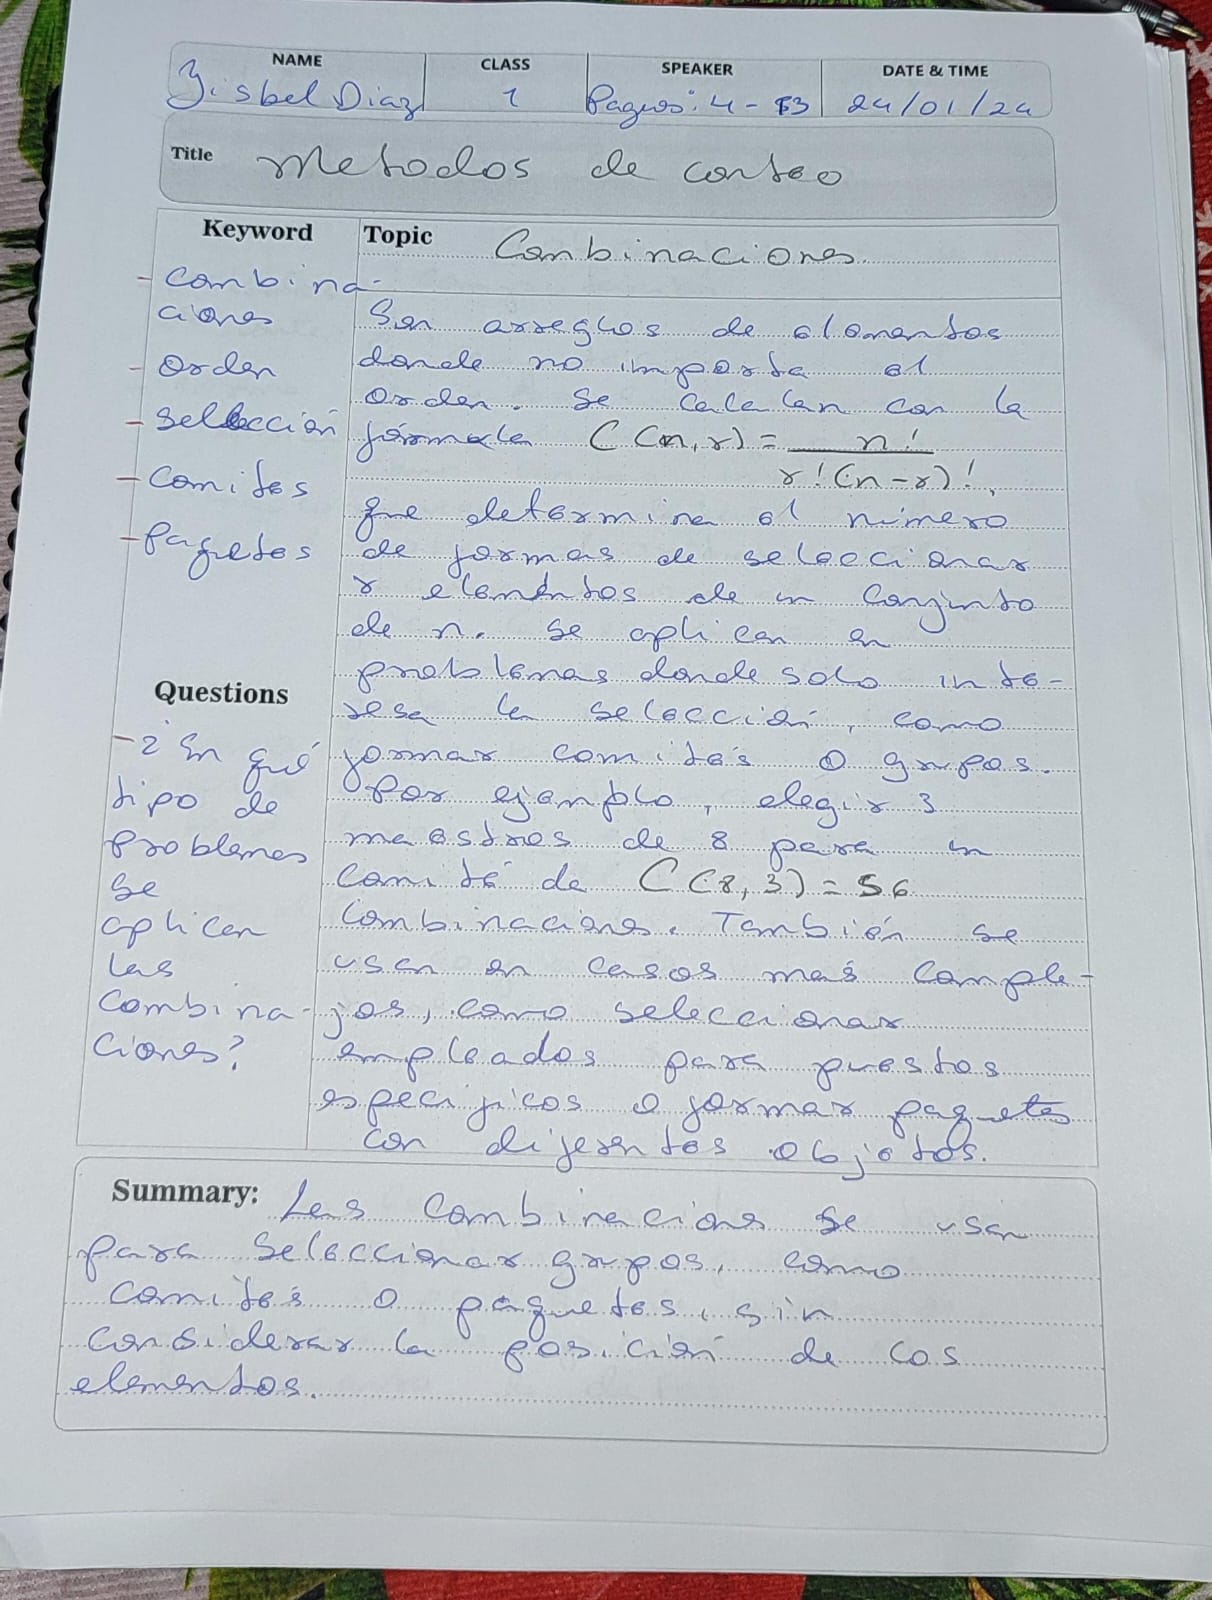 NAME CLASS SPEAKER DATE & TIME
Yisbel Diaz 1 Pagws: 4-53 24/01/24
Title Metodos de conteo
Keyword
- Combina-
ciones
- Orden
- Selección
- Comites
- Paquetes
Questions
- ¿En qué
tipo de
problemas
se
aplican
las
Combina-
ciones?
Topic Combinaciones.
Son arreglos de elementos
donde no importa el
orden. Se calculan con la
fórmula C(n,r) = n!
r!(n-r)!,
que determina el número
de formas de seleccionar
r elementos de un conjunto
de n. Se aplican en
problemas donde solo inte-
resa la selección, como
formar comités o grupos.
Por ejemplo, elegir 3
maestros de 8 para un
comité da C(8,3)=56
combinaciones. También se
usan en casos más comple-
jos, como seleccionar
empleados para puestos
específicos o formar paquetes
con diferentes objetos.
Summary: Las Combinaciones se usan
para seleccionar grupos, como
comités o paquetes, sin
considerar la posición de los
elementos.